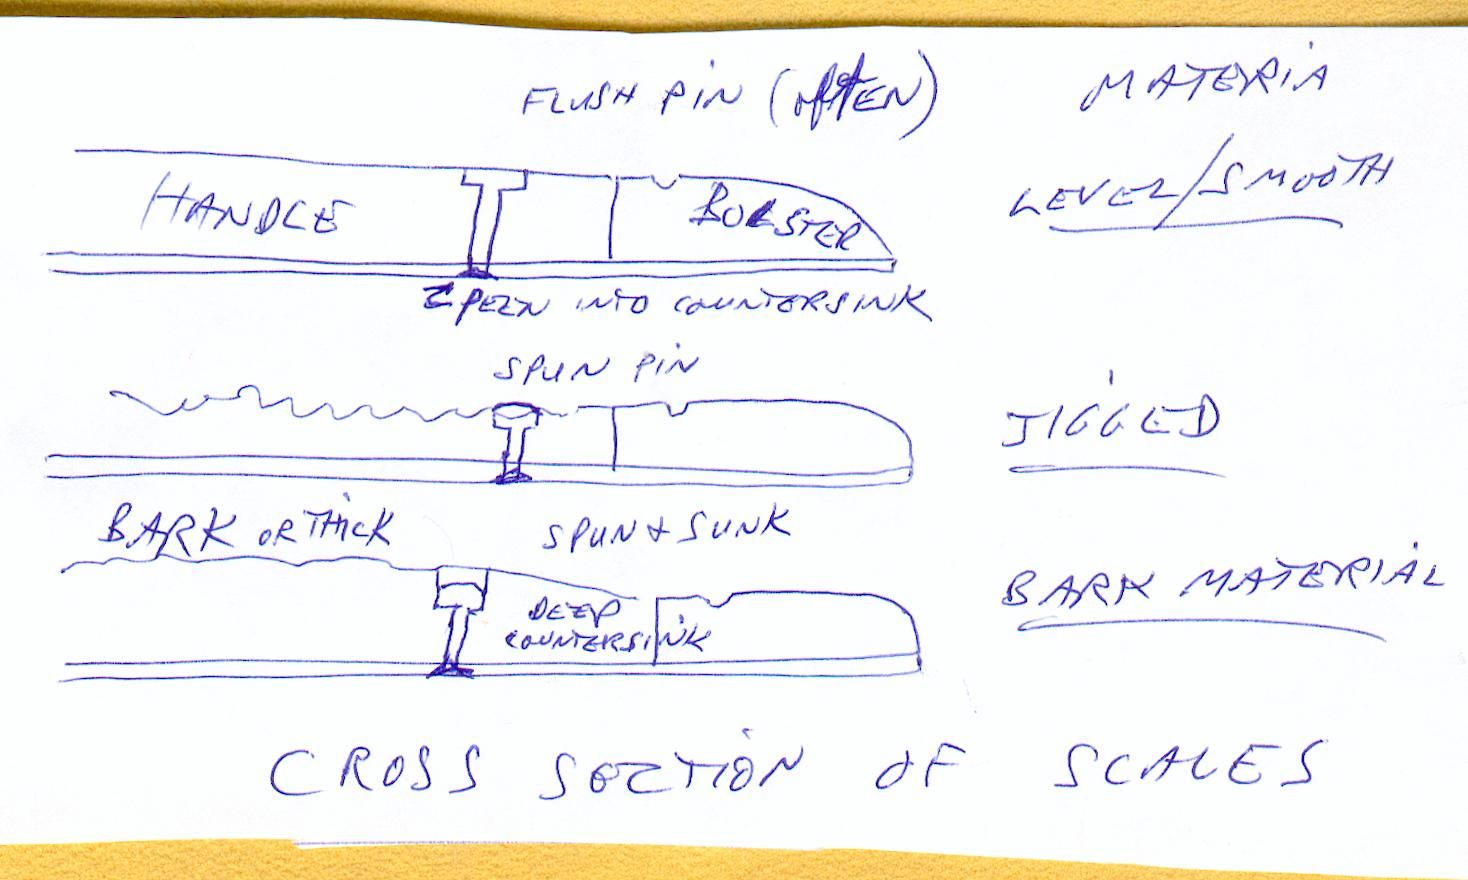 FLUSH PIN (OFTEN)
MATERIA
HANDLE
BOLSTER
LEVEL/SMOOTH
PEEN INTO COUNTERSINK
SPUN PIN
JIGGED
BARK OR THICK
SPUN & SUNK
DEEP
COUNTERSINK
BARK MATERIAL
CROSS SECTION OF SCALES